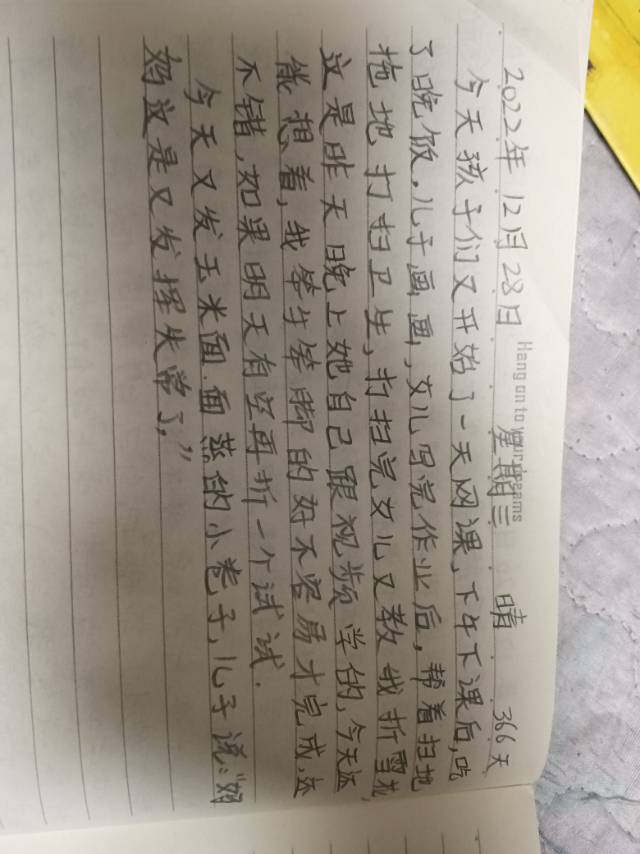 Hang on to your dreams
2022年 12月28日 星期三 晴 366天
今天孩子们又开始了一天网课,下午下课后,吃
了晚饭,儿子画画,女儿写完作业后,帮着扫地
拖地打扫卫生,打扫完女儿又教我折雪花,
这是昨天晚上她自己跟视频学的,今天还
能想着,我笨手笨脚的好不容易才完成,还
不错,如果明天有空再折一个试试.
今天又发玉米面.面蒸的小卷子,儿子说:“妈
妈这是又发挥失常了,”